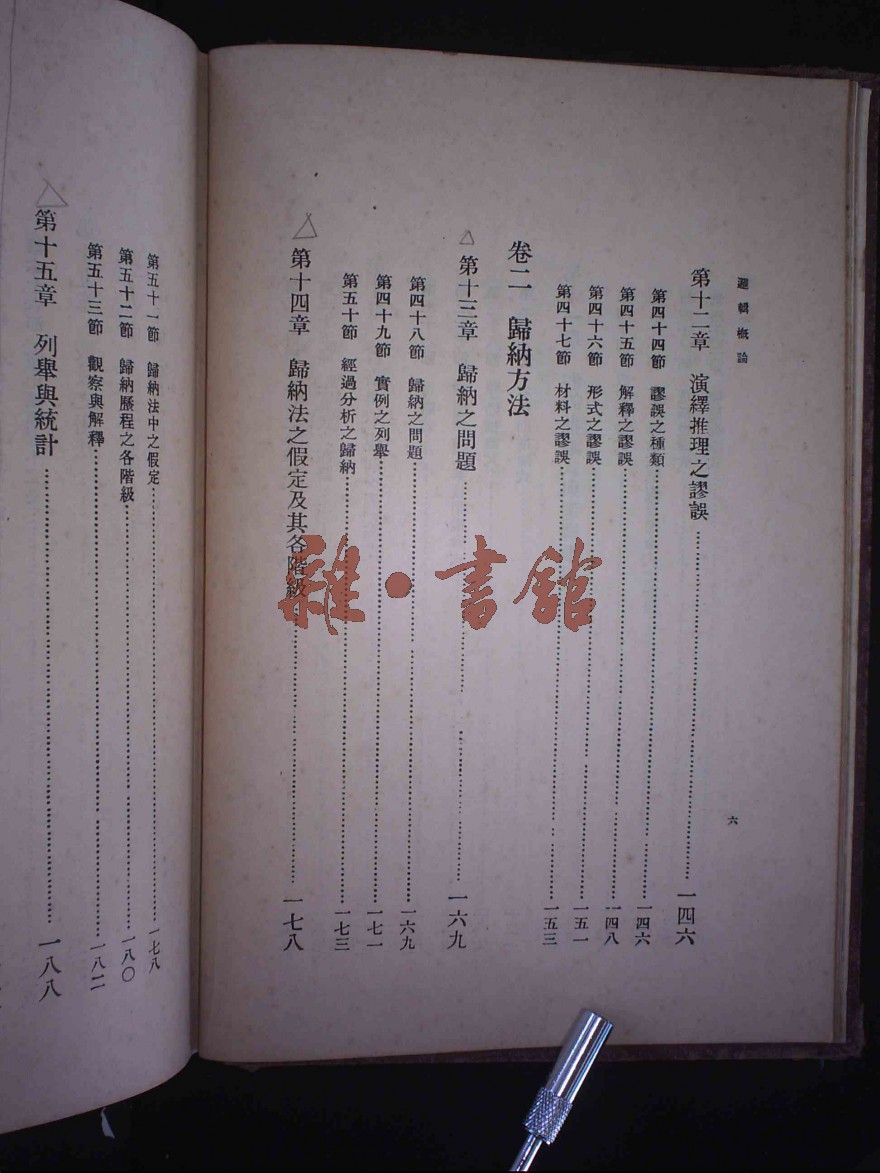 邏輯概論
六
第十二章　演繹推理之謬誤……一四六
第四十四節　謬誤之種類……一四六
第四十五節　解釋之謬誤……一四八
第四十六節　形式之謬誤……一五一
第四十七節　材料之謬誤……一五三
卷二　歸納方法
第十三章　歸納之問題……一六九
第四十八節　歸納之問題……一六九
第四十九節　實例之列舉……一七一
第五十節　經過分析之歸納……一七三
第十四章　歸納法之假定及其各階級……一七八
第五十一節　歸納法中之假定……一七八
第五十二節　歸納歷程之各階級……一八〇
第五十三節　觀察與解釋……一八二
第十五章　列舉與統計……一八八
雜·書館